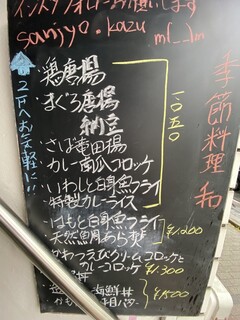 インスタフォローお願いします
sanjyo.kazu
m(__)m
季節料理 和
2Fへお気軽に!!
・鶏唐揚
・まぐろ唐揚
納豆
・さば竜田揚
・カレー南瓜コロッケ
・いわしと白身魚フライ
・特製カレーライス
一〇五〇
・はもと白身魚フライ
・天然鯛あら炊
¥1,200
かわつえびクリームコロッケと
カレーコロッケ ¥1,300
海鮮丼
¥1500